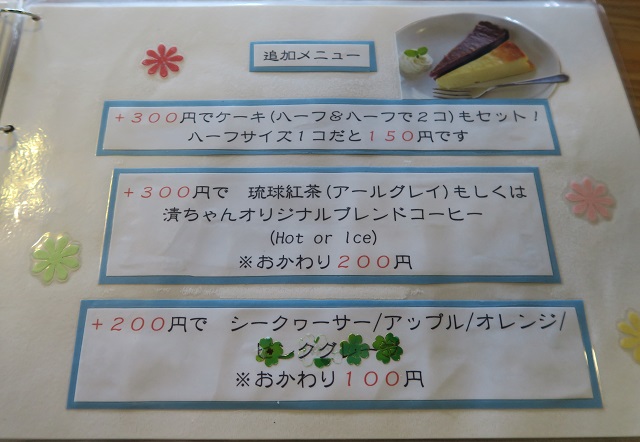 追加メニュー
+300円でケーキ(ハーフ&ハーフで2コ)もセット!
ハーフサイズ1コだと150円です
+300円で 琉球紅茶(アールグレイ)もしくは
漬ちゃんオリジナルブレンドコーヒー
(Hot or Ice)
※おかわり200円
+200円で シークヮーサー/アップル/オレンジ/
※おかわり100円